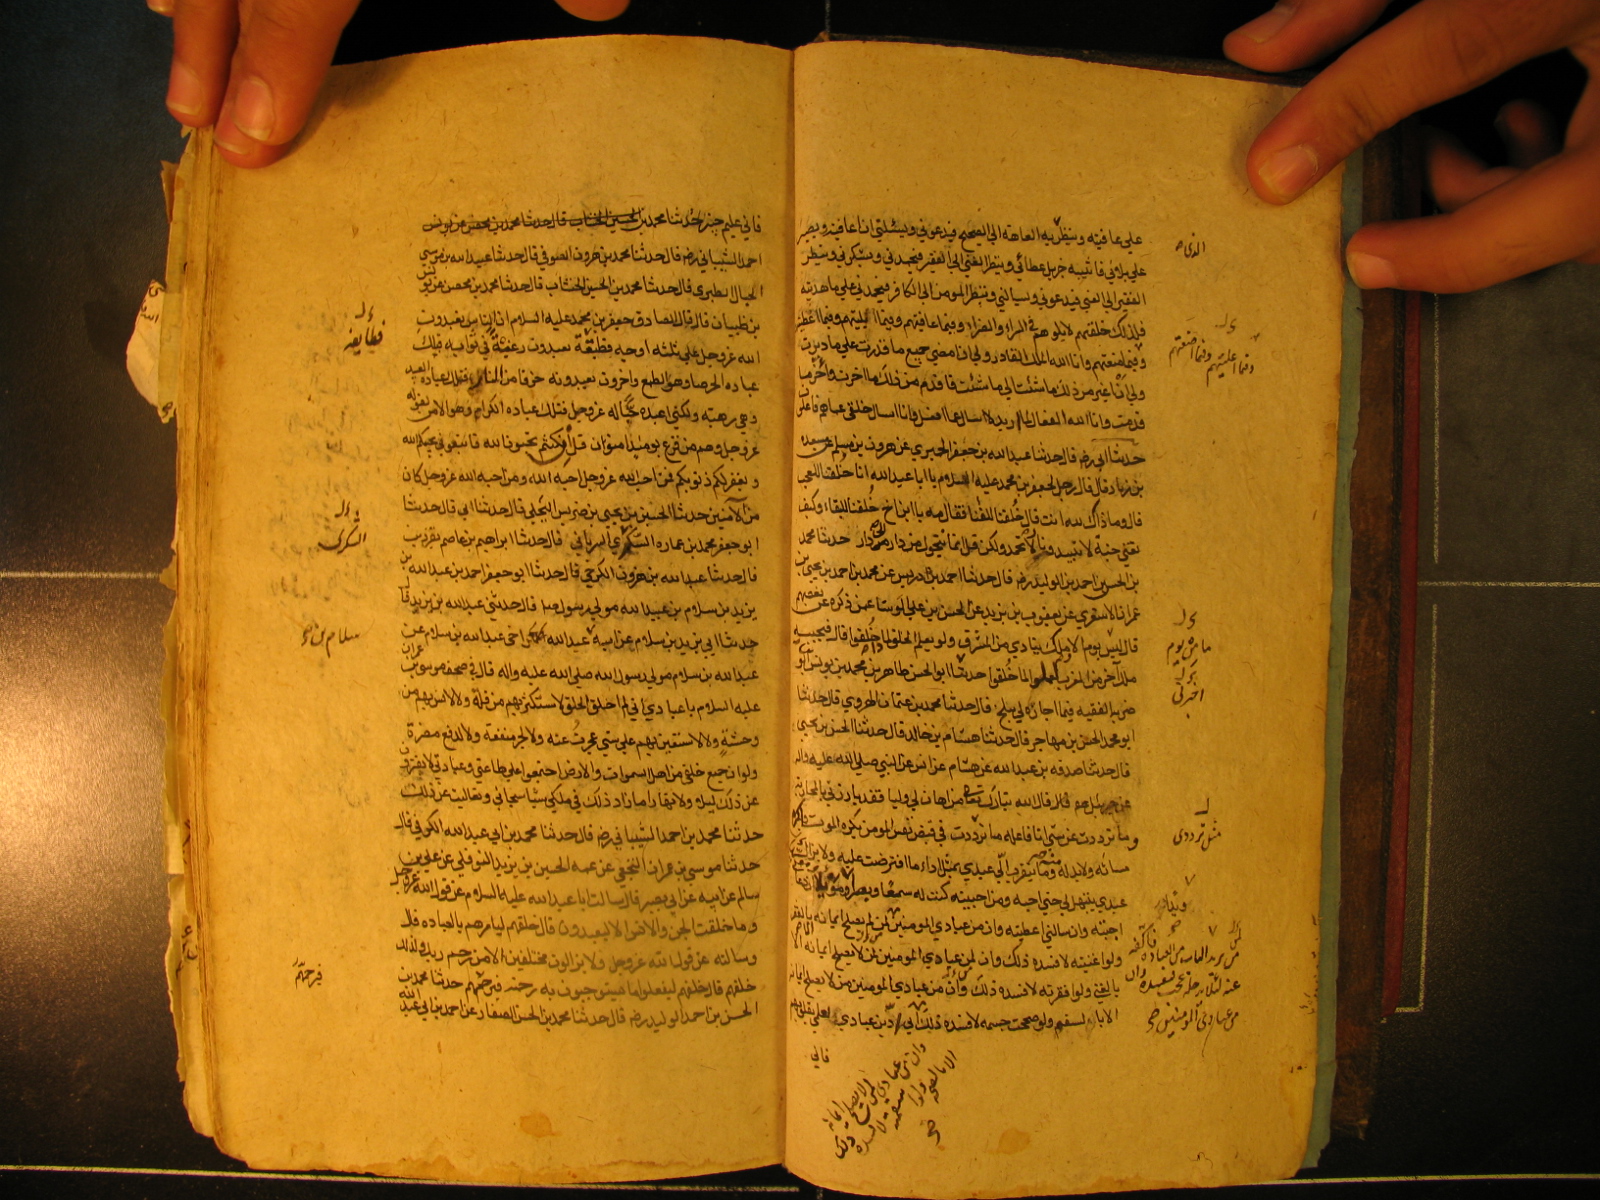 علي عافيته وينظر به العاهة الي الصحيح فيدعوني ويسئلني ان اعافيه ويصبر
علي بلائي فاثيبه جزيل عطائي وينظر الغني الي الفقير فيحمدني ويشكرني وينظر
الفقير الي الغني فيدعوني ويسالني وينظر المومن الي الكافر فيحمدني علي ما هديته
فلذلك خلقتهم لابلوهم في السراء والضراء وفيما عافيتهم وفيما ابتليتهم وفيما اعطيتهم
وفيما امنعهم وانا الله الملك القادر ولي ان امضي جميع ما قدرت علي ما دبرت
ولي ان اغير من ذلك ما شئت الي ما شئت فاقدم من ذلك ما اخرت واوخر ما
قدمت وانا الله الفعال لما اريد لا اسال عما افعل وانا اسال خلقي عما هم فاعلون
حدثنا ابي رضه قال حدثنا عبد الله بن جعفر الحميري عن هرون بن مسلم عن مسعده
بن زياد قال قال رجل لجعفر بن محمد عليه السلام يا ابا عبد الله انا خلقنا للعجب
قال وما ذاك لله انت قال خلقنا للفنا فقال مه يا ابن اخ خلقنا للبقاء وكيف
تفني جنة لا تبيد ونار لا تخمد ولكن قل انما نتحول من دار الي دار حدثنا محمد
بن الحسن بن احمد بن الوليد رضه قال حدثنا احمد بن ادريس عن محمد بن احمد بن يحيي بن
عمران الاشعري عن يعقوب بن يزيد عن الحسن بن علي الوشا عمن ذكره عن بعضهم
قال ليس يوم الا وملك ينادي من المشرق لو يعلم الخلق لما ذا خلقوا قال فيجيبه
ملك آخر من المغرب لعملوا لما خلقوا حدثنا ابو الحسن طاهر بن محمد بن يونس ابو
الفقيه فيما اجازه لي ببلخ قال حدثنا محمد بن عثمان الهروي قال حدثنا
ابو محمد الحسن بن مهاجر قال حدثنا هشام بن خالد قال حدثنا الحسن بن يحيي
قال حدثنا صدقه بن عبد الله عن هشام عن انس عن النبي صلي الله عليه واله
عن جبرئيل قال قال الله تبارك تعا من اهان لي وليا فقد بارزني بالمحاربة
وما ترددت عن شي انا فاعله ما ترددت في قبض نفس المومن يكره الموت واكره
مسائه ولا بد له منه وما يتقرب الي عبدي بمثل اداء ما افترضت عليه ولا يزال
عبدي يبتهل لي حتي احبه ومن احببته كنت له سمعا وبصرا
اجبته وان سالني اعطيته وان من عبادي المومنين لمن لم يصلح ايمانه الا بالفقر
ولو اغنيته لافسده ذلك وان من عبادي المومنين لمن لا يصلح ايمانه الا
بالغني ولو افقرته لافسده ذلك وان من عبادي المومنين من لا يصلح ايمانه
الا بالسقم ولو صححت جسمه لافسده ذلك اني ادبر عبادي لعلمي بقلوبهم
فاني
وان من عبادي
لمن لا يصلح ايمانه
الا بالصحة ولو
سقمته لافسده ذلك
صح
مامن يوم
اخبرني
مثل ترددي
من عبادي المومنين صح
فاني عليم خبير حدثنا محمد بن
احمد الشيباني رضه قال حدثنا محمد بن هرون الصوفي قال حدثنا عبيد الله بن موسي
الحبال الطبري قال حدثنا محمد بن الحسين الخشاب قال حدثنا محمد بن محصن عن يونس
بن ظبيان قال قال الصادق جعفر بن محمد عليه السلام ان الناس يعبدون
الله عز وجل علي ثلثه اوجه فطبقة يعبدون رغبة في ثوابه فتلك
عباده الحرصا وهو الطمع واخرون يعبدونه خوفا من النار فتلك عباده العبيد
وهي رهبة ولكني اعبده حبا له عز وجل فتلك عباده الكرام وهو الامن لقوله
عز وجل وهم من فزع يومئذ امنون قل ان كنتم تحبون الله فاتبعوني يحببكم الله
ويغفر لكم ذنوبكم فمن احب الله عز وجل احبه الله ومن احبه الله عز وجل كان
من الآمنين حدثنا الحسين بن يحيي بن ضريس البجلي قال حدثنا ابي قال حدثنا
ابو جعفر محمد بن عماره السكري السرياني قال حدثنا ابراهيم بن عاصم بقزوين
قال حدثنا عبد الله بن هرون الكرخي قال حدثنا ابو جعفر احمد بن عبد الله بن
يزيد بن سلام بن عبيد الله مولي رسول الله قال حدثني عبد الله بن يزيد قال
حدثنا ابي يزيد بن سلام عن ابيه عبد الله اخي عبد الله بن سلام عن
عبد الله بن سلام مولي رسول الله صلي الله عليه واله قال في صحف موسي بن عمران
عليه السلام يا عبادي اني لم اخلق الخلق لاستكثر بهم من قلة ولا لانس بهم من
وحشة ولا لاستعين بهم علي شي عجزت عنه ولا لجر منفعة ولا لدفع مضرة
ولو ان جميع خلقي من اهل السموات والارض اجتمعوا علي طاعتي وعبادتي لا يفترون
عن ذلك ليلا ولا نهارا ما زاد ذلك في ملكي شيا سبحاني وتعاليت عن ذلك
حدثنا محمد بن احمد الشيباني رضه قال حدثنا محمد بن ابي عبد الله الكوفي قال
حدثنا موسي بن عمران النخعي عن عمه الحسين بن يزيد النوفلي عن علي بن
سالم عن ابيه عن ابي بصير قال سالت ابا عبد الله عليه السلام عن قول الله عز وجل
وما خلقت الجن والانس الا ليعبدون قال خلقهم ليامرهم بالعباده قال
وسالته عن قول الله عز وجل ولا يزالون مختلفين الا من رحم ربك ولذلك
خلقهم قال خلقهم ليفعلوا ما يستوجبون به رحمته فيرحمهم حدثنا محمد بن
الحسن بن احمد الوليد رضه قال حدثنا محمد بن الحسن الصفار عن احمد بن ابي عبد الله
السكري
سلام بن
فيرحمهم